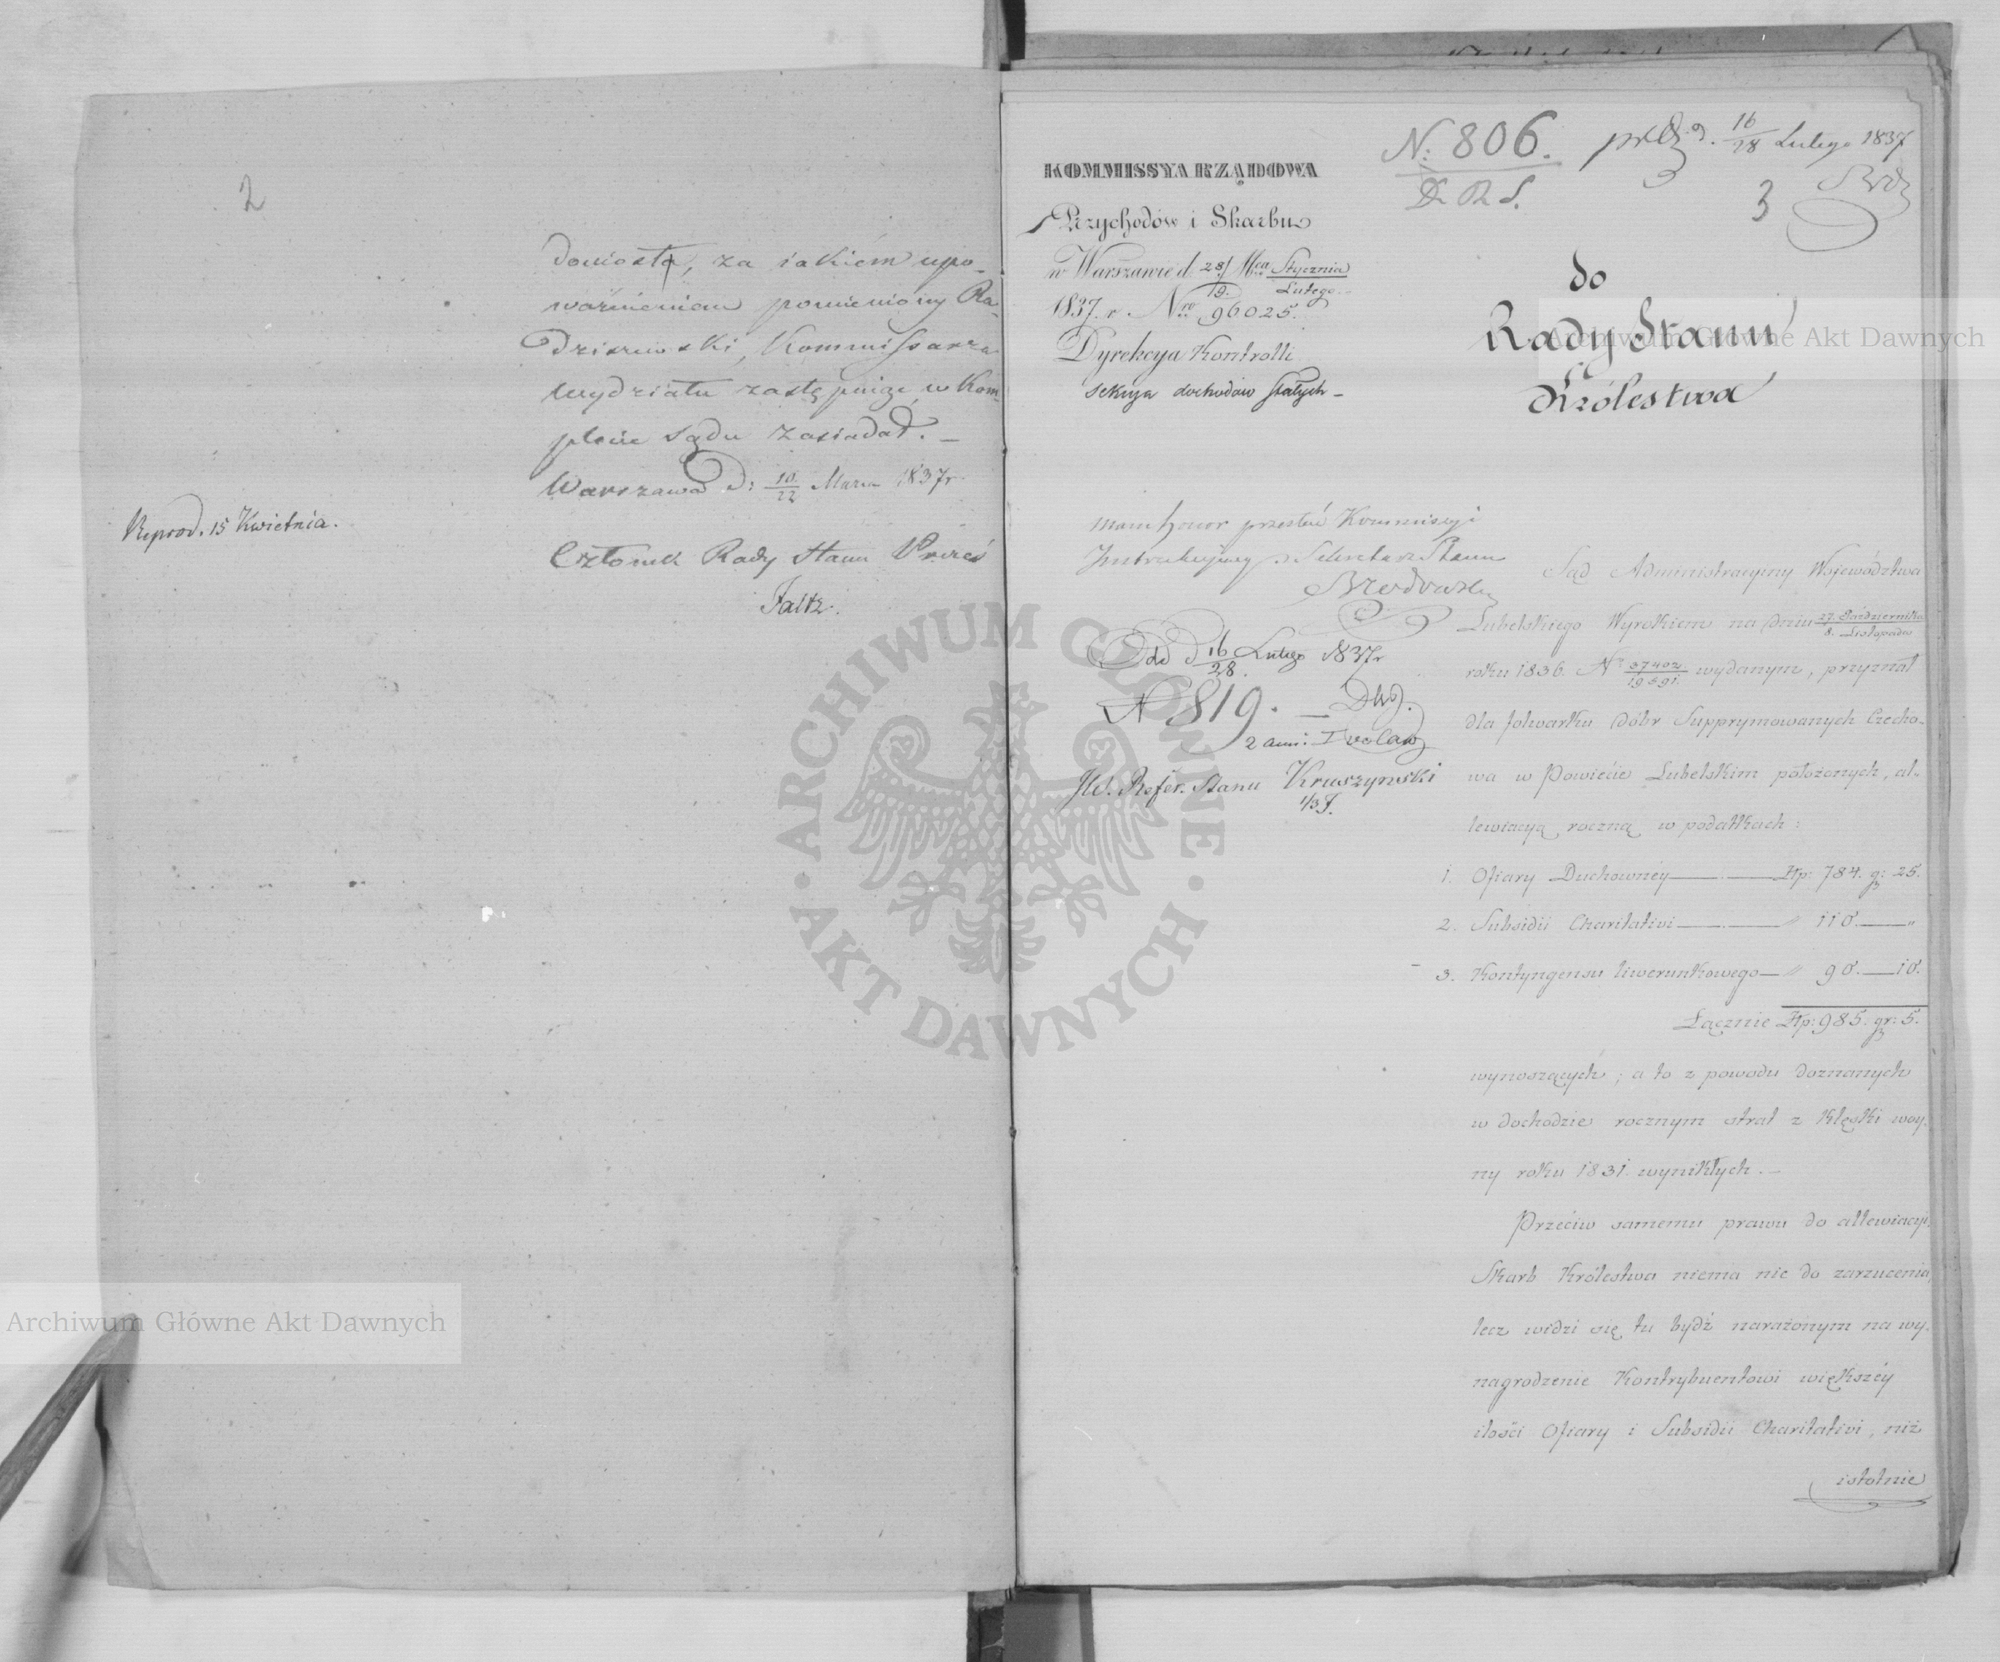 2
doniosła, za iakiém upo-
ważnieniem pomieniony Ra-
dziszewski, Kommissarza
wydziału zastępując, w Kom-
plecie sądu zasiadał. –
Warszawa d: 10/22 Marca 1837 r.
Reprod. 15 Kwietnia.
Członek Rady Stanu Prezes
Faltz.
N: 806.
D. R. S.
d. 16/28 Lutego 1837
3
KOMMISSYA RZĄDOWA
Przychodów i Skarbu
w Warszawie d. 28/9 Mca Stycznia/Lutego
1837. r. Nro 96025.
Dyrekcya Kontrolli
Sekcya dochodów stałych –
do
Rady Stanu
Królestwa
Mam honor przesłać Kommisyi
Instrukcyjney Sekretarz Stanu
d 16/28 Lutego 1837 r
N 819.
JW. Refer. Stanu Kruszyński
1/3 F.
Sąd Administracyiny Województwa
Lubelskiego Wyrokiem na dniu 27. Października/8. Listopada
roku 1836. Nr 37402/19591. wydanym, przyznał
dla folwarku dóbr Supprymowanych Czecho-
wa w Powiecie Lubelskim położonych, al-
lewiacyą roczną w podatkach:
1. Ofiary Duchownéy — Złp: 784. g: 25.
2. Subsidii Charitativi — " 110. — "
3. Kontyngensu liwerunkowego — " 90. — 10.
Łącznie Złp: 985. gr: 5.
wynoszących; a to z powodu doznanych
w dochodzie rocznym strat z klęski woy-
ny roku 1831. wynikłych. –
Przeciw samemu prawu do allewiacyi,
Skarb Królestwa niema nic do zarzucenia
lecz widzi się tu bydź narażonym na wy-
nagrodzenie Kontrybuentowi większéy
ilości Ofiary i Subsidii Charitativi, niż
istotnie
Archiwum Główne Akt Dawnych
Archiwum Główne Akt Dawnych
ARCHIWUM GŁÓWNE
· AKT DAWNYCH ·